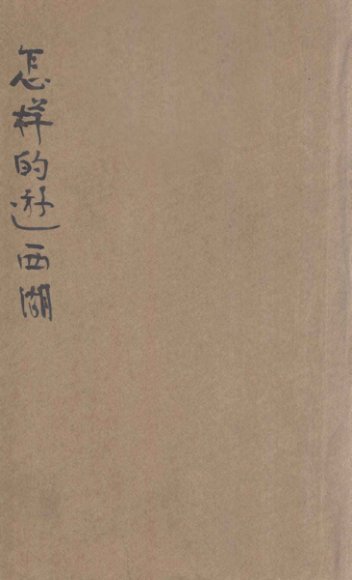 怎样的遊西湖